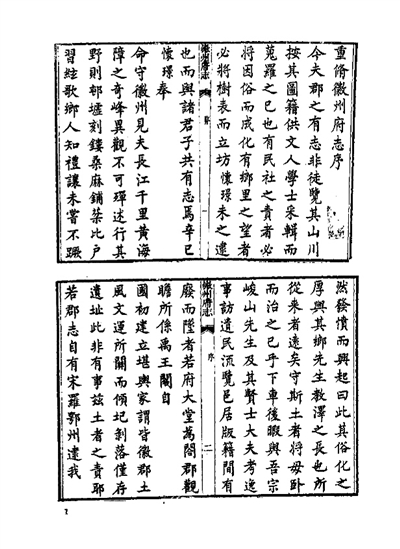 重脩徽州府志序
今夫郡之有志非徒覽其山川
按其圖籍供文人學士采輯而
蒐羅之已也有民社之責者必
將因俗而成化有鄉里之望者
必將樹表而立坊懷璟未之逮
徽州府志 序 一
也而與諸君子共有志焉辛巳
懷璟奉
命守徽州見夫長江千里黃海
障之奇峰異觀不可殫述行其
野則邨墟刻鏤桑麻鋪棻比戶
習絃歌鄉人知禮讓未嘗不蹶
然發憤而興起曰此其俗化之
厚與其鄉先生教澤之長也所
從來者遠矣守斯土者將毋臥
而治之已乎下車後暇與吾宗
峻山先生及其賢士大夫考逸
事訪遺民流覽邑居版籍間有
徽州府志 序 二
廢而墜者若府大堂為閤郡觀
瞻所係禹王閣自
國初建立堪輿家謂皆徽郡土
風文運所關而傾圮剝落僅存
遺址此非有事茲土者之責耶
若郡志自有宋羅鄂州遺我
1